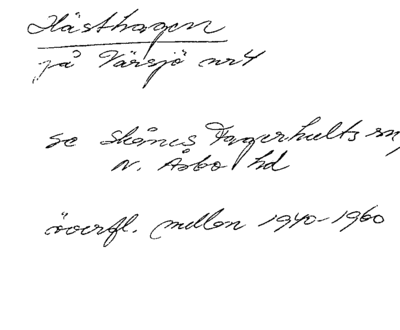 Hästhagen
på Värsjö nr 4
se Skånes Fagerhults sn,
N. Åsbo hd
överfl. mellan 1940-1960